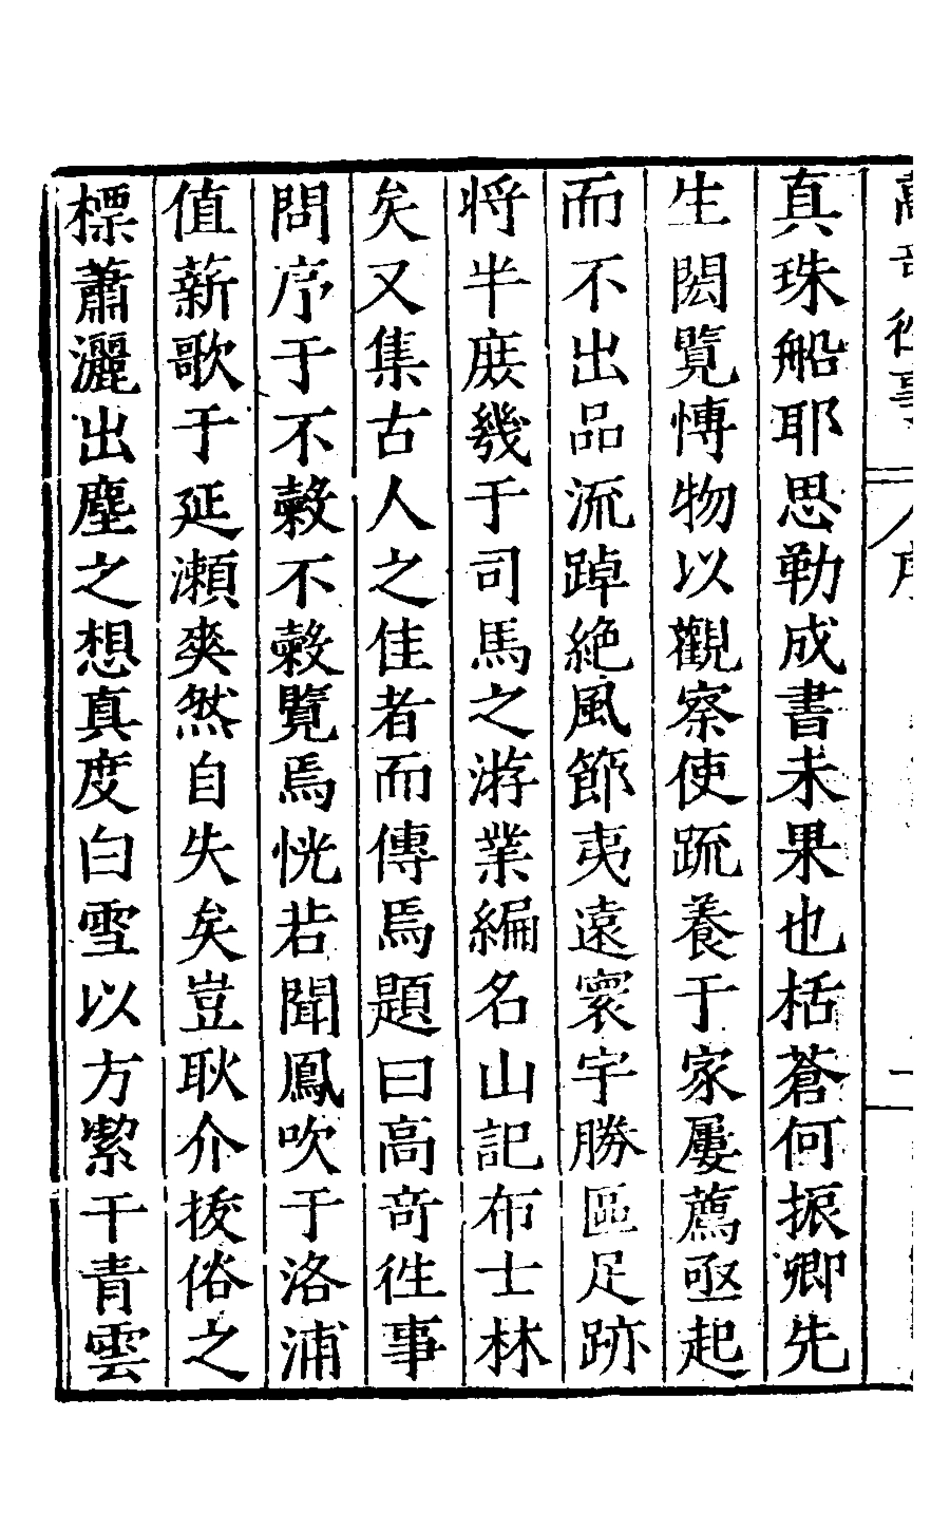 真珠船耶思勒成書未果也栝蒼何振卿先
生閎覽愽物以觀察使䟽養于家屢薦亟起
而不出品流踔絶風節夷遠寰宇勝區足跡
将半庻幾于司馬之游業編名山記布士林
矣又集古人之佳者而傳焉題曰高竒徃事
問序于不糓不糓覽焉恍若聞鳳吹于洛浦
值薪歌于延瀬爽然自失矣豈耿介拔俗之
標蕭灑出塵之想真度白雪以方絜干青雲